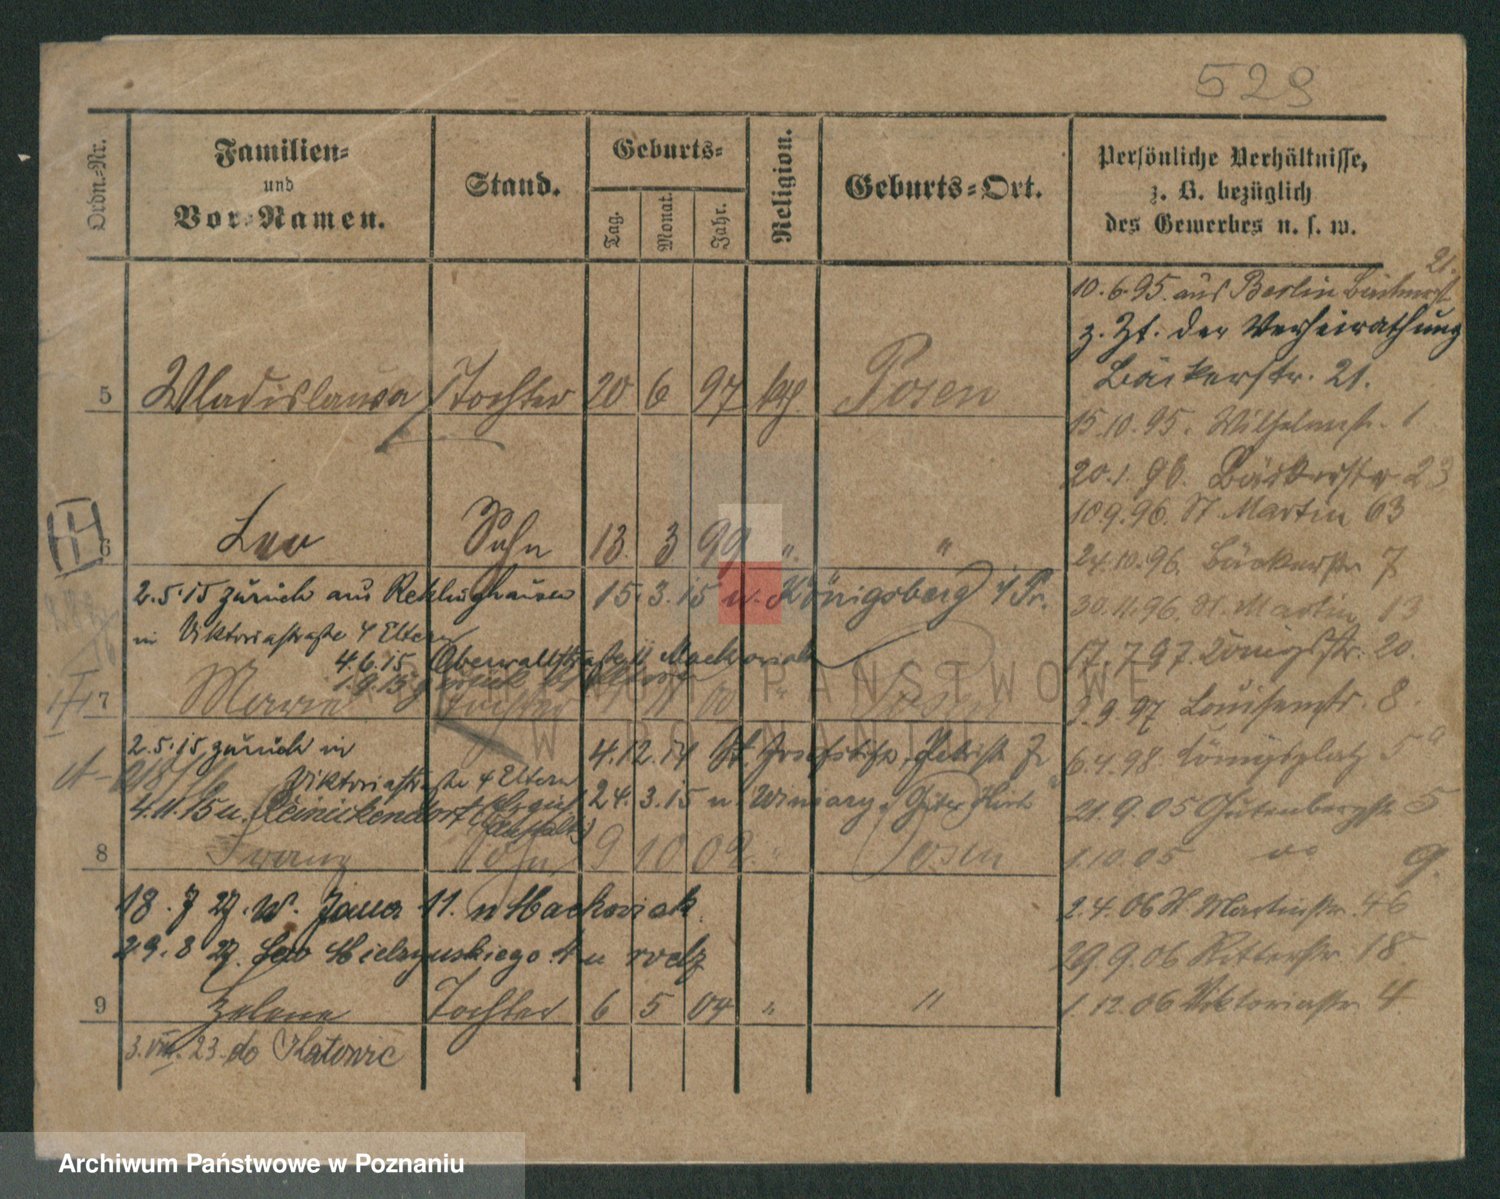 529
Ordn.-Nr.
Familien-
und
Vor-Namen.
Stand.
Geburts-
Tag.
Monat.
Jahr.
Religion.
Geburts-Ort.
Persönliche Verhältnisse,
z. B. bezüglich
des Gewerbes u. s. w.
21.
10.6.95. aus Berlin
z. Zt. der Verheirathung
Bäckerstr. 21.
5 Wladislawa Tochter 20 6 97 kath Posen
15.10.95. Wilhelmstr. 1
20.1.96. Bäckerstr 23
10.9.96. St Martin 63
6 Leo Sohn 13. 3 99 ". "
24.10.96. Bäckerstr 7
2.5.15 zurück aus Recklinghausen 15.3.15 n. Königsberg i/Pr.
30.11.96. St. Martin 13
in Viktoriastraße 4 Eltern
4.6.15 Oberwallstraße Mackowiak
17.7.97. Königsstr. 20.
1.9.15 zurück
7 Marie Tochter Posen
3.9.97 Louisenstr. 8.
2.5.15 zurück in 4.12.14 St. Josefstift, Petristr
6.4.98. Königsplatz 5
Viktoriastraße 4 Eltern 24.3.15 n. Winiary, Guter Hirt
4.11.15 n. Reinickendorf
21.9.05 Gutenbergstr 5
8 Franz Sohn 9 10 02 " Posen
1.10.05 do 9.
18.7.27. W. Jana 11. u Mackowiak
2.4.06 St. Martinstr. 46
29.8 27. Leo Mielzynskiego u rodz
29.9.06 Ritterstr. 18
9 Helene Tochter 6 5 04 " "
1.12.06 Viktoriastr 4
3.VIII.23. do Katowic
ARCHIWUM PAŃSTWOWE
W POZNANIU
Archiwum Państwowe w Poznaniu